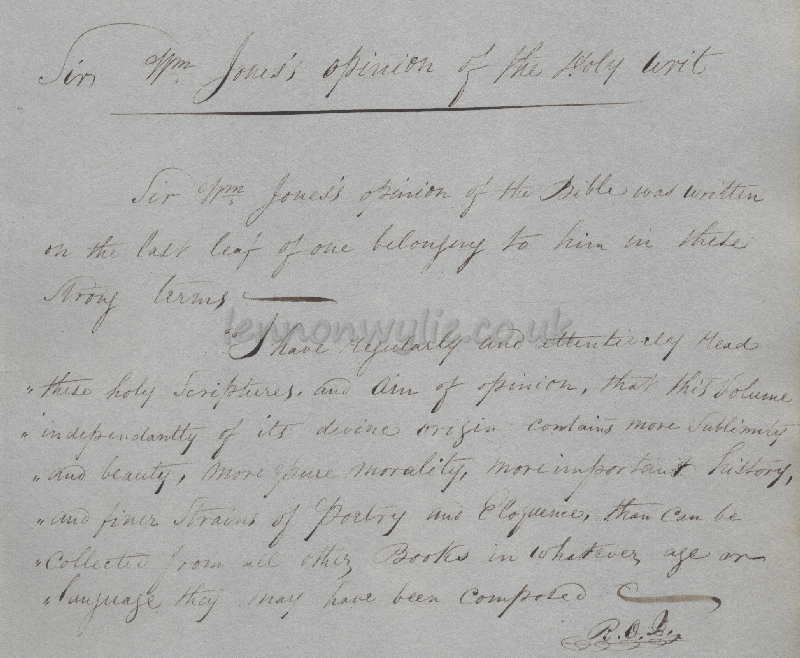 Sir Wm Jones's opinion of the Holy writ
Sir Wm Jones's opinion of the Bible was written
on the last leaf of one belonging to him in these
strong terms
lennonwylie.co.uk
"I have regularly and attentively read
"these holy Scriptures, and am of opinion, that this Volume
"independantly of its devine origin contains more Sublimity
"and beauty, more pure morality, more important history,
"and finer Strains of Poetry and Eloquence, than can be
"Collected from all other Books in whatever age or
"language they may have been composed